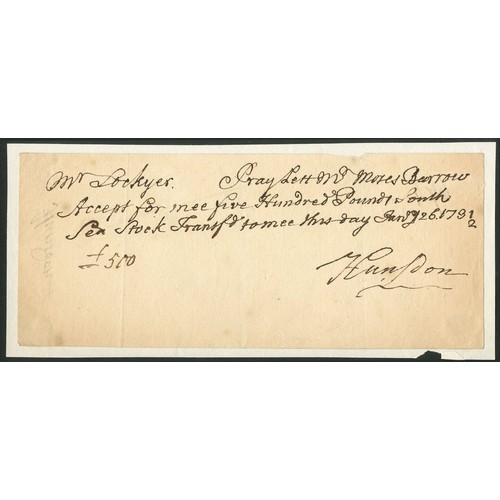 Mr Lockyer. Pray Lett Mr Moses Barrow
Accept for mee five Hundred Pounds South
Sea Stock Transf'd to mee this day Janry 26. 1731/2
£500
Hunsdon